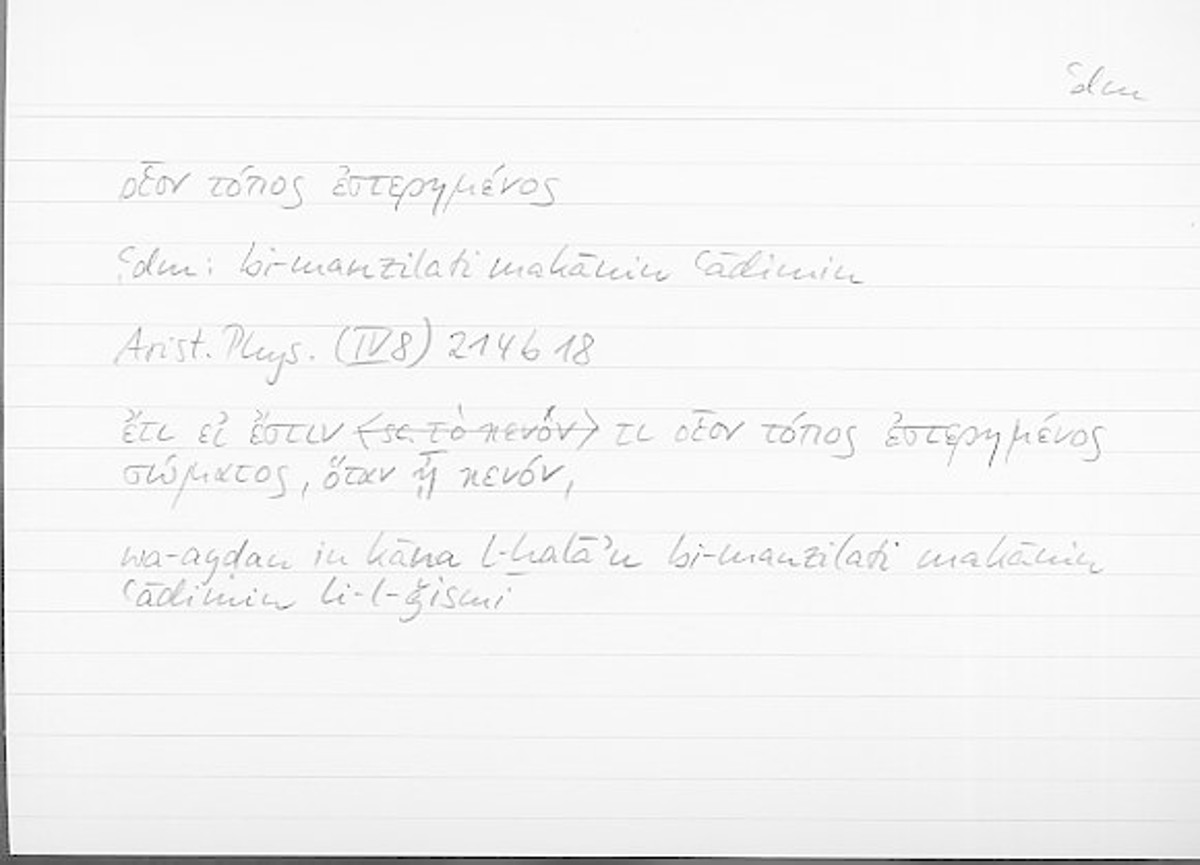 ʿdm
οἷον τόπος ἐστερημένος
ʿdm: bi-manzilati makānin ʿādimin
Arist. Phys. (IV 8) 214 b 18
ἔτι εἰ ἔστιν <sc. τὸ κενόν> τι οἷον τόπος ἐστερημένος
σώματος, ὅταν ᾖ κενόν,
wa-ayḍan in kāna l-ḫalāʾu bi-manzilati makānin
ʿādimin li-l-ǧismi